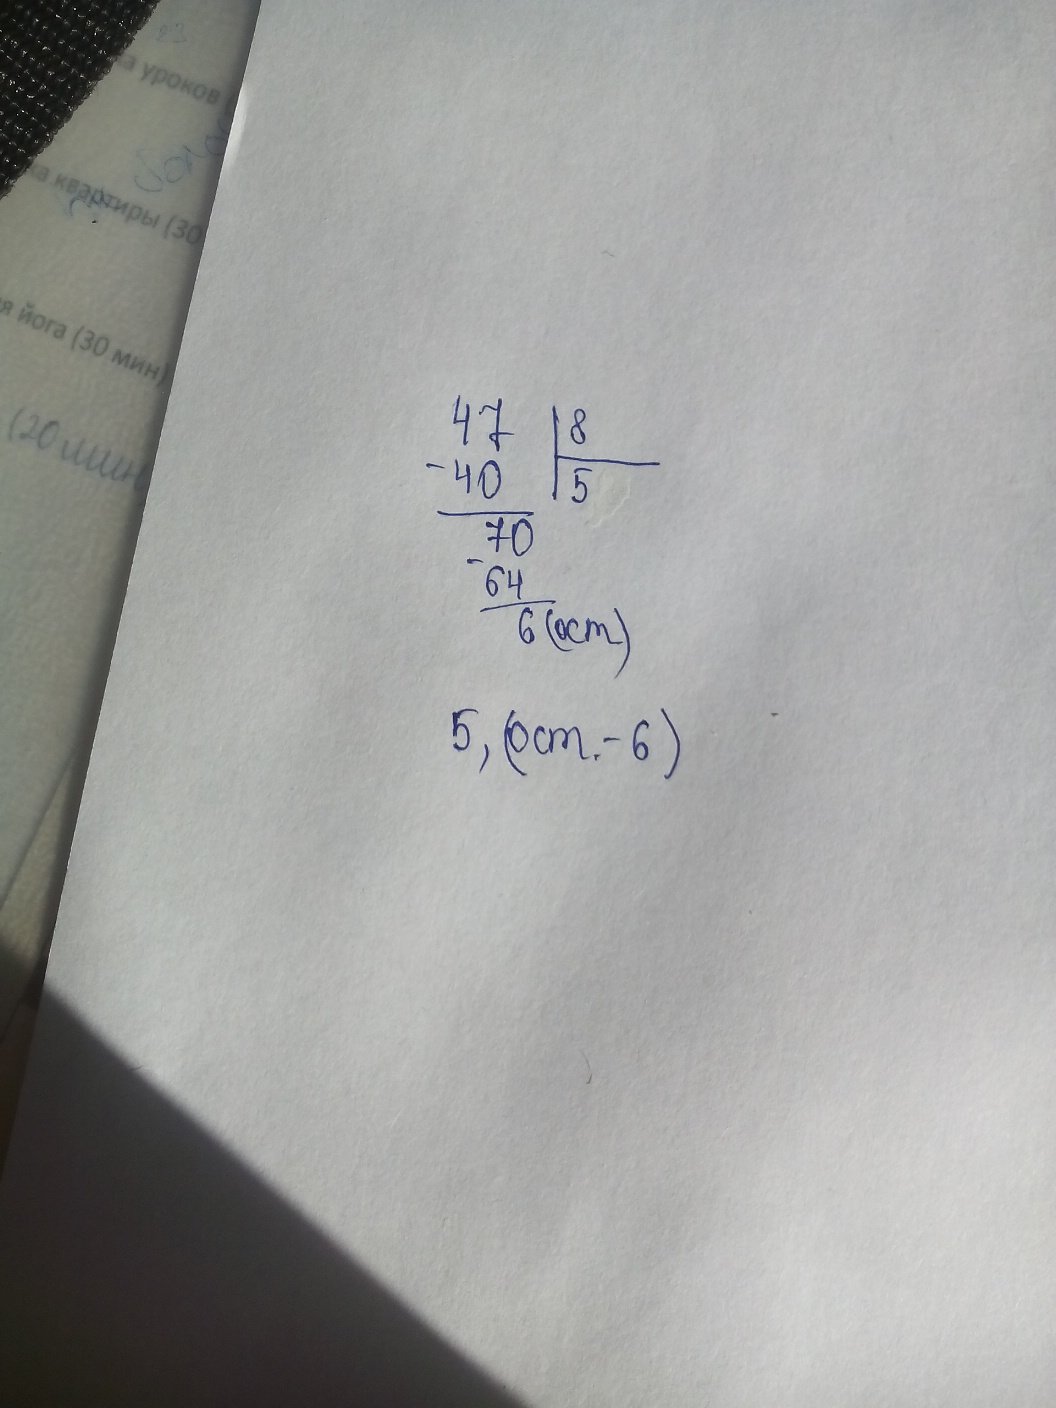 уроков
квартиры (30
я йога (30 мин)
(20 мин
47 8
-40 5
70
-64
6 (ост)
5, (ост.- 6)